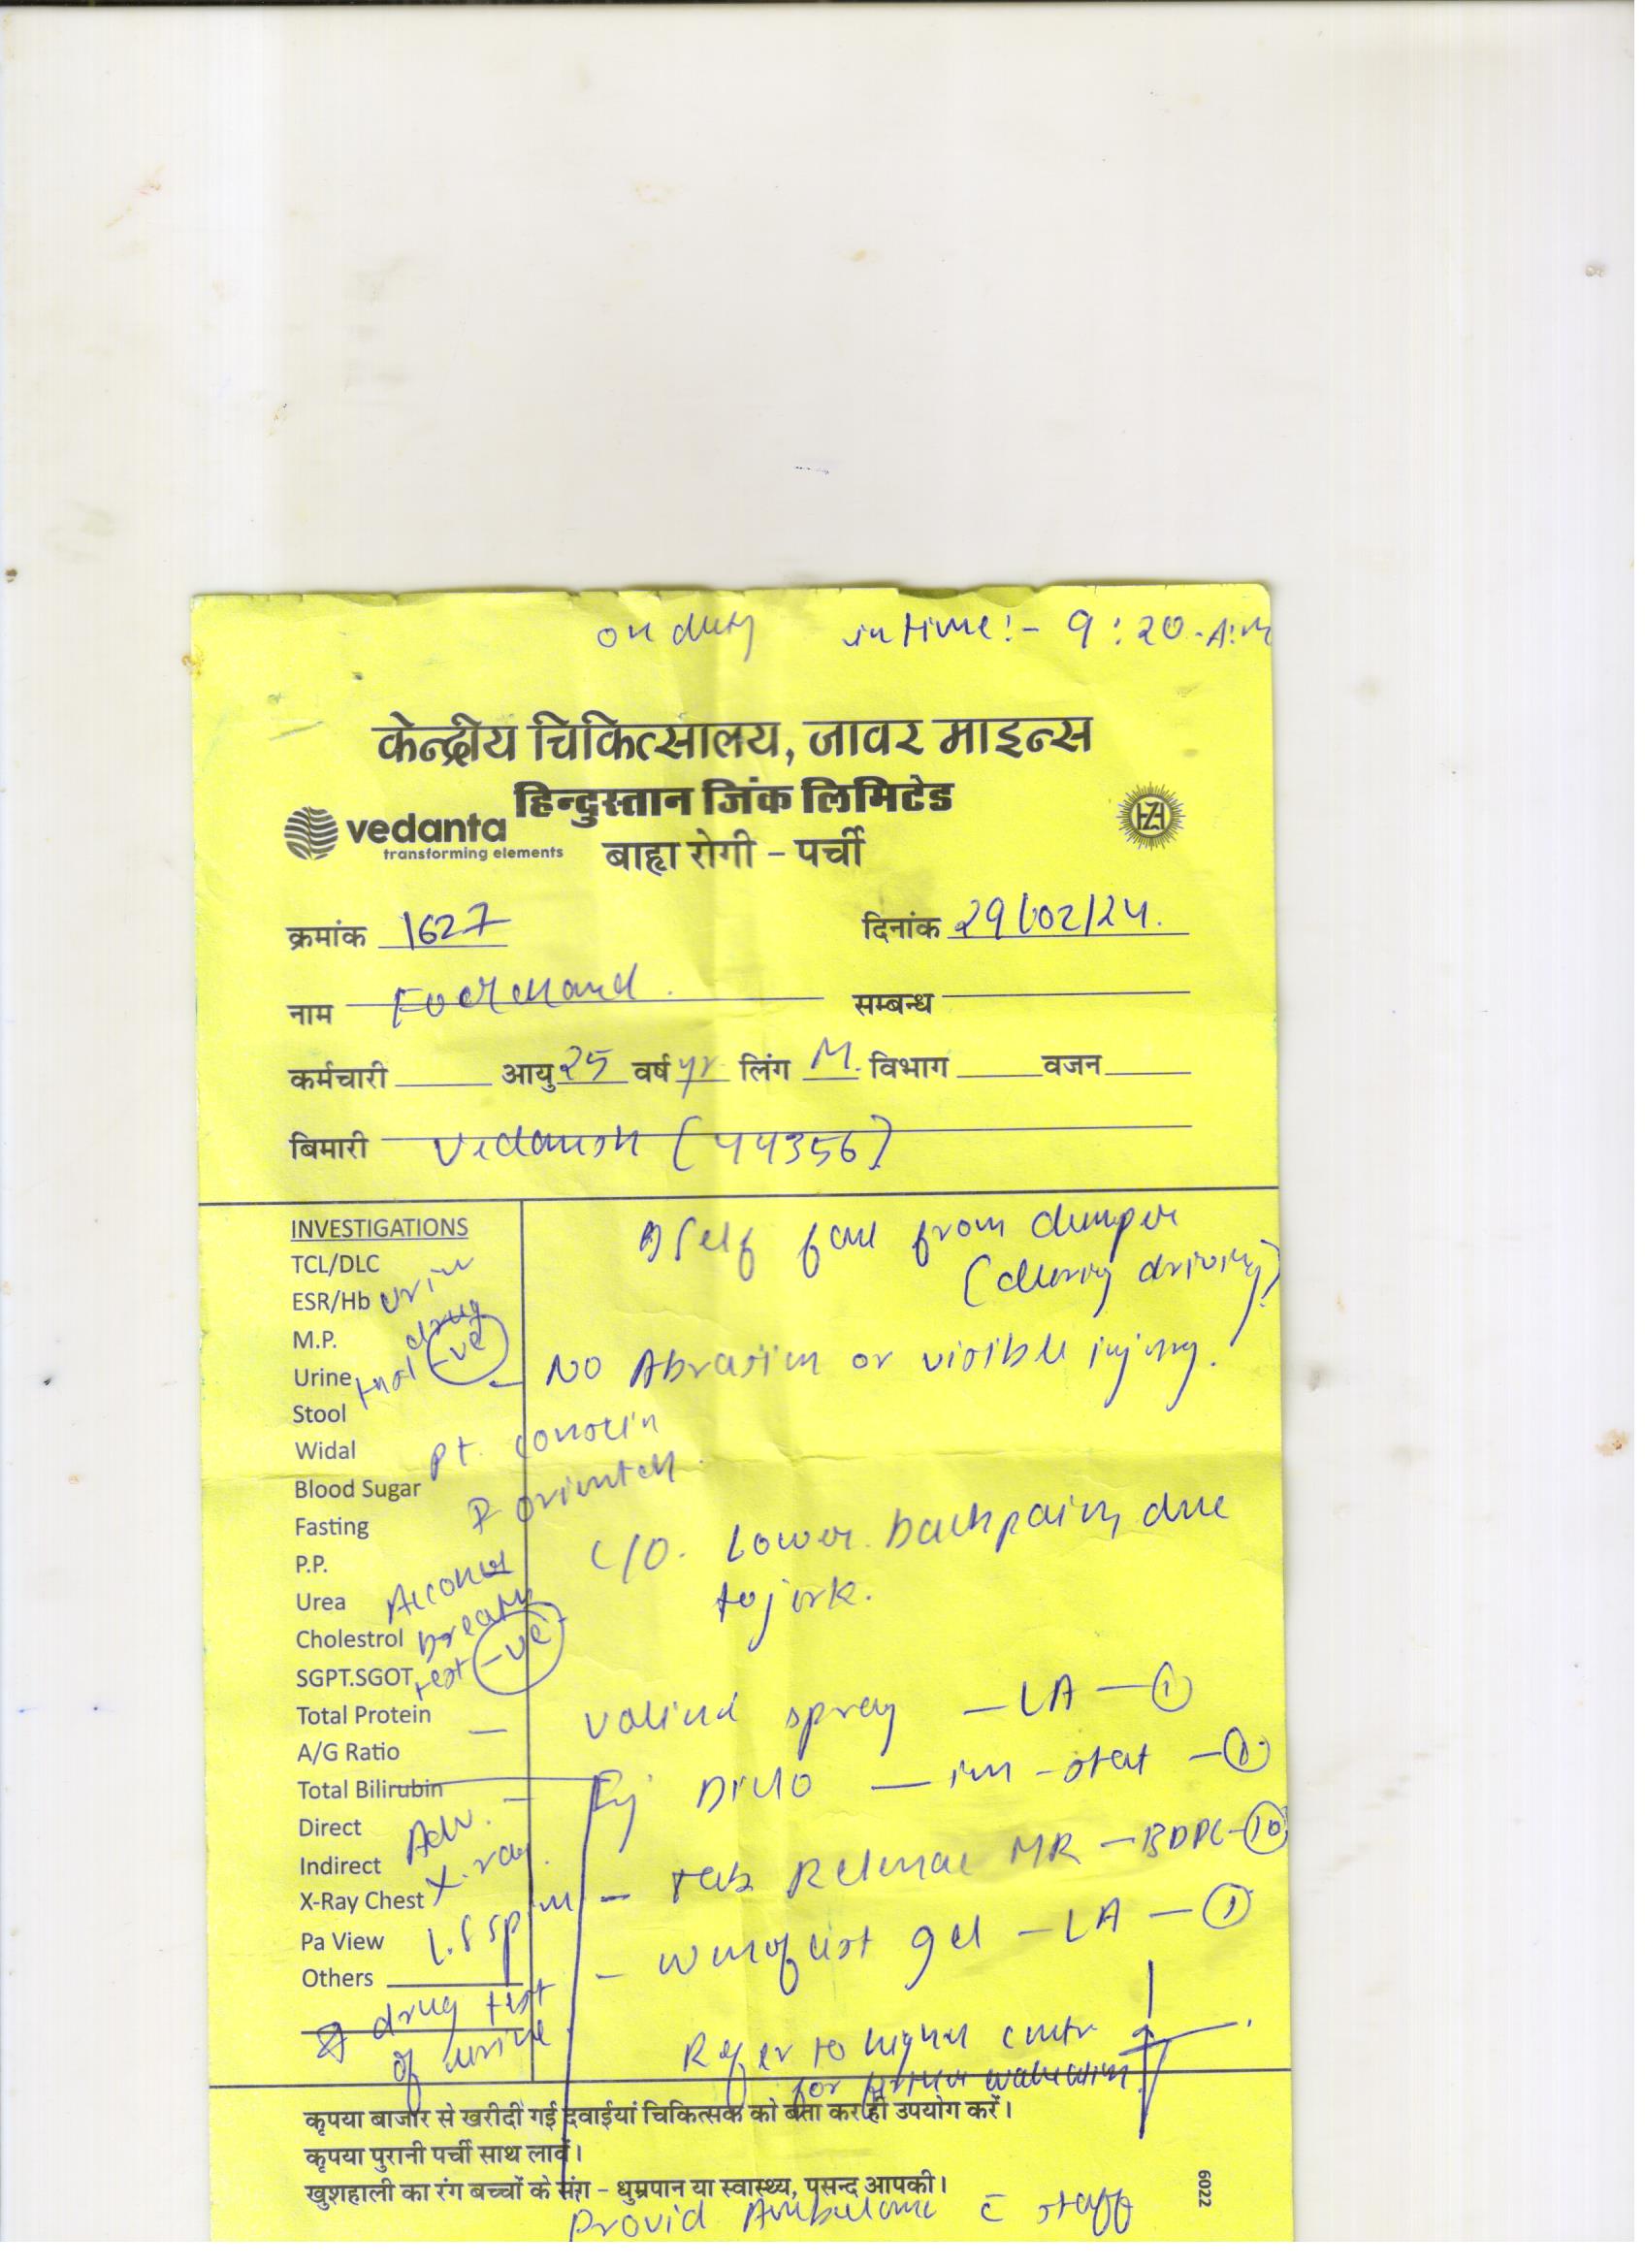 on duty in time:- 9:20 A.M
केन्द्रीय चिकित्सालय, जावर माइन्स
हिन्दुस्तान जिंक लिमिटेड
vedanta
transforming elements
बाह्य रोगी - पर्ची
क्रमांक 1627 दिनांक 29/02/24.
नाम सम्बन्ध
कर्मचारी आयु 25 वर्ष yr लिंग M. विभाग वजन
बिमारी (44356)
INVESTIGATIONS
TCL/DLC
ESR/Hb
M.P.
Urine
Stool
Widal
Blood Sugar
Fasting
P.P.
Urea
Cholestrol
SGPT.SGOT
Total Protein
A/G Ratio
Total Bilirubin
Direct
Indirect
X-Ray Chest
Pa View
Others
drug
-ve
Pt.
Alcohol
breath
test -ve
Adv.
X-ray
L.S spin
drug test
of urine
Self fall from dumper
(during driving)
- No Abrasion or visible injury.
C/O. Lower backpain, due
to jerk.
- spray - LA - 1
- Inj Diclo - im - stat - 1
- Tab MR - BDPC - 10
- gel - LA - 1
Refer to higher centr
for
कृपया बाजार से खरीदी गई दवाईयां चिकित्सक को बता कर ही उपयोग करें।
कृपया पुरानी पर्ची साथ लावें।
खुशहाली का रंग बच्चों के संग - धुम्रपान या स्वास्थ्य, पसन्द आपकी।
6022
Provid Ambulance c̄ staff